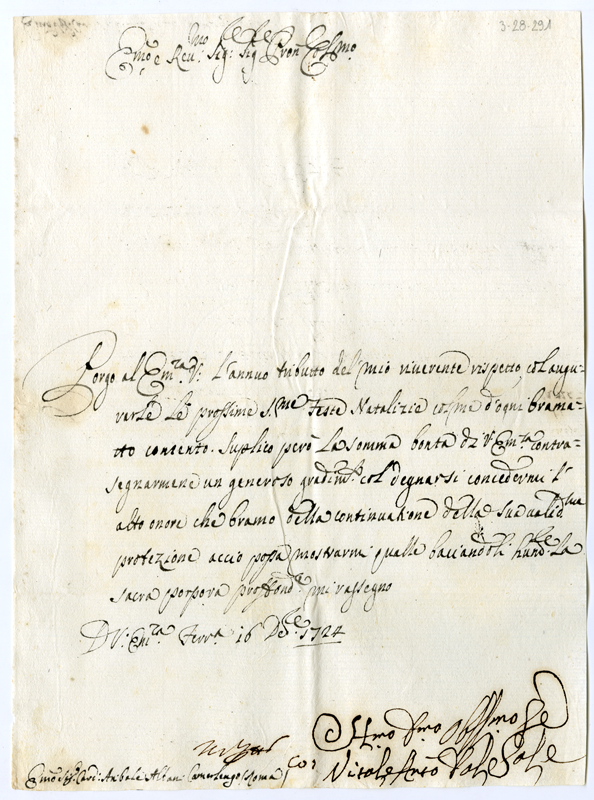 3-28-291
Em.o e Reu.mo Sig.r Sig.r Pron Col.mo
Porgo al Em.za V: L'annuo tributto del mio riverente rispetto, col augu=
rarle le prossime S.me Feste Natalizie colme d'ogni brama=
tto contento. Suplico però La somma bontà di V. Em.za contra=
segnarmene un generoso gradim.to col degnarsi concedermi l'
alto onore che bramo della continuatione della sua valid.ma
protezione acciò possa mostrarmi qualle bacciandoli hum.te La
sacra porpora proffond.e mi rassegno
D V. Em.za Ferr.a 16 Dec.e 1724
Vitale
Em.o Sig. Card: Anbale Alban Camerlengo Roma